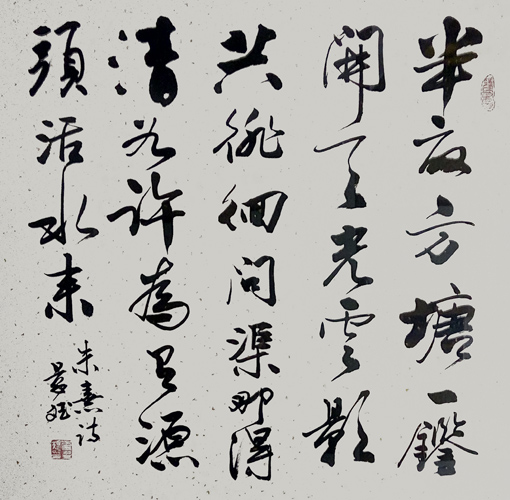 半畝方塘一鑑
開天光雲影
共徘徊問渠那得
清如許為有源
頭活水来
朱熹詩